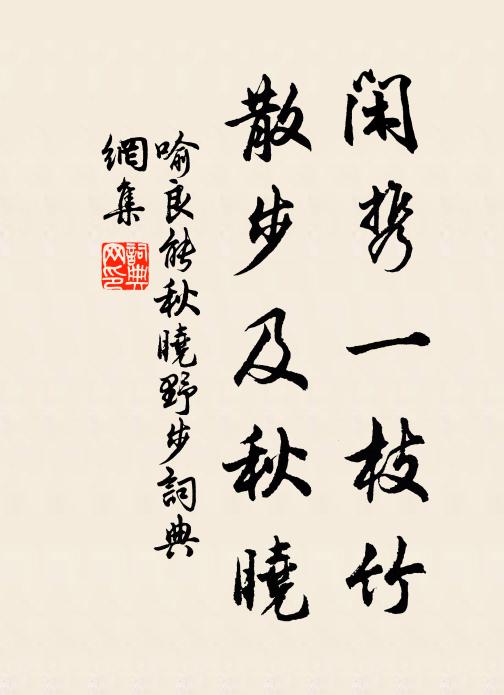 闲携一枝竹
散步及秋曉
喻良能秋曉野步詞典
網集
詞典网印